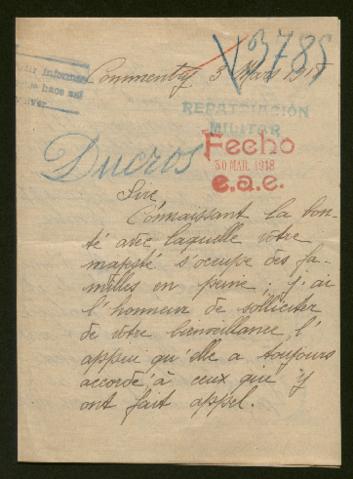 3785
Commentry 3 Mars 1918
REPATRIACIÓN
MILITAR
Fecho
30 MAR. 1918
e.a.e.
Ducros
Sire
Connaissant la bon-
té avec laquelle votre
majesté s'occupe des fa-
milles en peine ; j'ai
l'honneur de solliciter
de votre bienveillance, l'
appui qu'elle a toujours
accordé, à ceux qui y
ont fait appel.